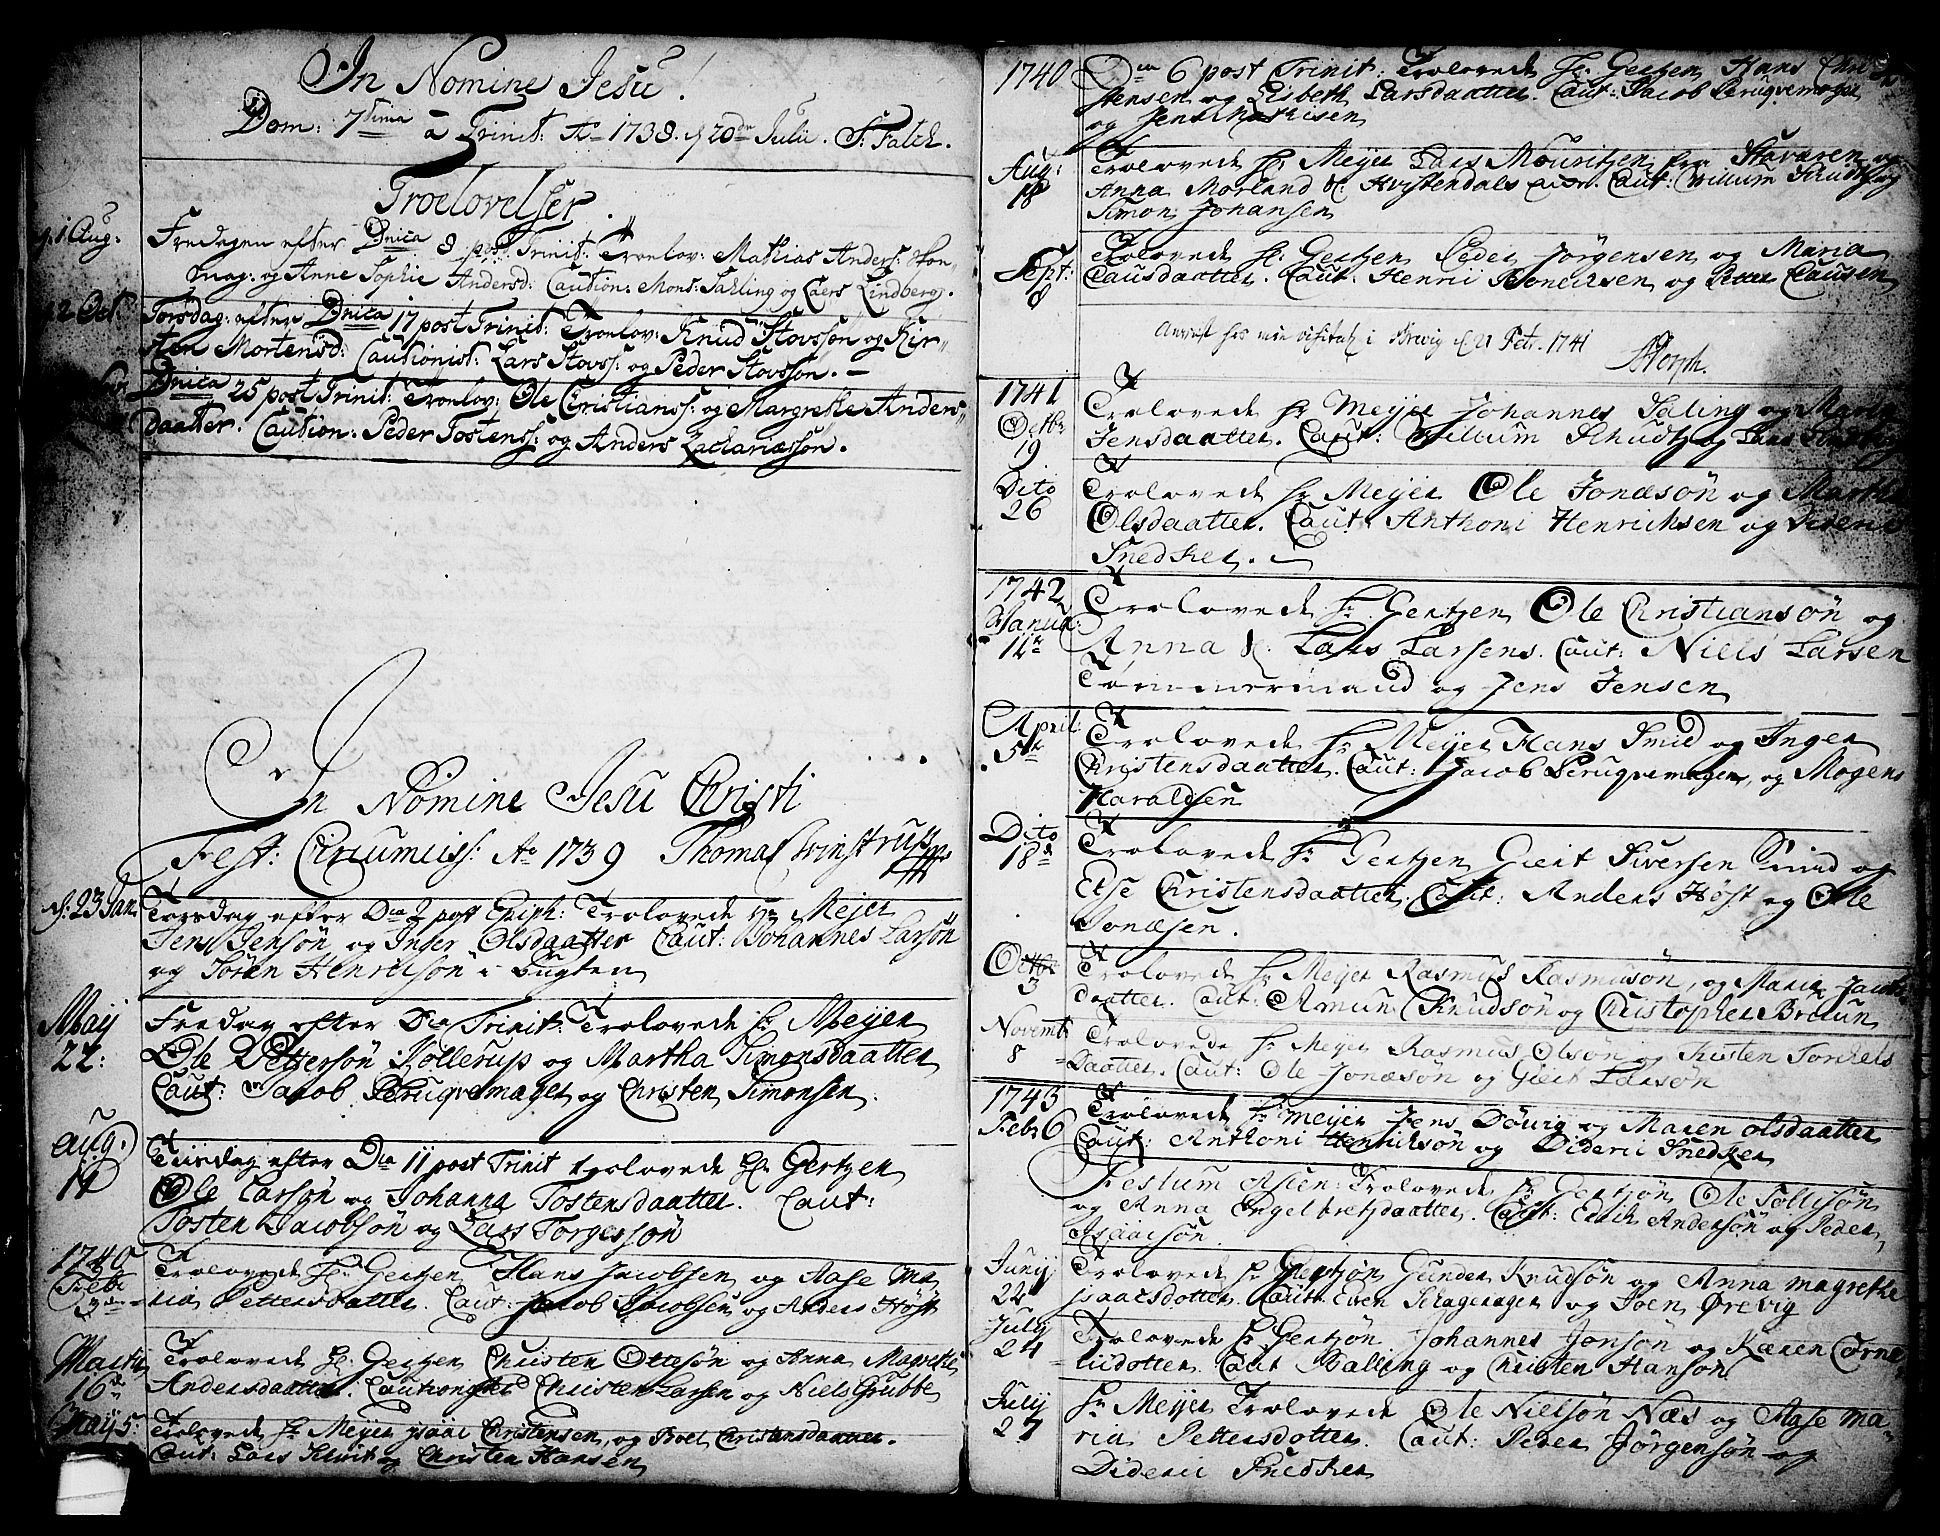 In Nomine Jesu!
Dom: 7tima à Trinit: Ao 1738. d 20de Julii. S: Falck.
Troelovelser.
d. 1 Aug: Fredagen efter Dnica 8 post Trinit: Troelov: Mathias Anders:
mag: og Anne Sophie Andersd: Caution: Mons: Salling og Laers Lindberg.
d. 2 Oct Torsdag: efter Dnica 17 post Trinit: Troelov: Knud Stovssøn og Kir-
sten Mortensd: Cautionist: Lars Stovss: og Peder Stovsson.
Dnica 25 post Trinit: Troelov: Ole Cristianss: og Margrethe Anders
daatter. Caution: Peder Tostenss: og Anders Zachariæssøn.
In Nomine Jesu Christi
Fest: Circumciss: Ao 1739 Thomas
d: 23 Jan Torsdag efter Dca 2 post Epiph: Trolovede Hr Mejer
Jens Jensøn og Inger Olsdaatter Caut: Johannes Larsøn
og Søren Henricsøn i bugten
Maij 22: Fredag efter Dca Trinit: Trolovede hr Meijer
Ole Pettersøn Kollerup og Martha Simonsdaatter
Caut: Jacob Peruqvemager og Christen Simonsen.
Aug. Tiirsdag efter Dca 11 post Trinit trolovede Hr Gertzen
Ole Larsøn og Johanna Tostensdaatter. Caut:
Tosten Jacobsøn og Lars Torgerssøn
1740 Febr Trolovede Hr Gertzen Hans Jacobsen og Aase Ma
ria Pettersdaatter. Caut: Jacob Jacobsen og Anders Høst
Martii 16de Trolovede Hr Gertzen Christen Ottesøn og Anna Magrethe
Andersdaatter. Cautionister Christen Larsen og Niels Grubbe
Maij 5 Trolovede Hr Meijer Isaac Christensen og Boel Christensdaatter.
Caut: Lars og Christen Hansen
1740 Dca 6 post Trinit: Trolovede Hr Gertzen Hans Chri
stensen og Lisbeth Larsdaatter. Caut: Jacob Peruqvemager
og Jens Mathisen
Aug: 18 Trolovede Hr Meijer Lars Mouritzen fra Staværen og
Anna Morland Caut: Villum og
Simon Johansen
Sept: 8 Trolovede Hr Gertzen Peder Jørgensen og Maria
Clausdaatter. Caut: Henric Bondesen og Peter Clausen
i Brevig d. 21 Febr. 1741
1741 Octbr 19 Trolovede Hr Meijer Johannes Saling og Maria
Jensdaatter. Caut: Willum Schudtz og Lars
Dito 26 Trolovede Hr Meijer Ole Jonæsøn og Marthe
Olsdaatter. Caut: Anthoni Henricksen og Dideric
Snedker.
1742 Janua: Trolovede Hr Gertzen Ole Christiansøn og
Anna Lars Larsens. Caut: Niels Larsen
Tømmermand og Jens Jensen
April 5te Trolovede Hr Meijer Hans Smid og Inger
Christensdaatter. Caut: Jacob Peruqvemager, og Mogens
Haraldsen
Dito 18de Trolovede Hr Gertzen Gierit Siversen Smid og
Else Christensdaatter. Caut: Anders Høst og Ole
Jonæsen.
Octbr 3 Trolovede Hr Meijer Rasmus Rasmusøn, og Maria Jacobs
daatter. Caut: Amun Knudsøn og Christopher Bruun
Novemb 8 Trolovede Hr Meijer Rasmus Olsøn og Kisten Torkels
daatter. Caut: Ole Jonæsøn og Gierit Larsøn
1743 Febr 6 Trolovede Hr Meijer Jens Dövig og Maren Olsdaatter
Caut: Anthoni Henricksøn og Dideric Snedker
Festum Ascen: Trolovede Hr Gertzøn Ole Tollisøn
og Anna Engelbretsdaatter. Caut: Erik Andersøn og Peder
Isaacsøn.
Junij 22 Trolovede Hr Gertzøn Gunder Knudsøn og Anna Magrethe
Isaacsdotter. Caut: Even og Soen Ørevig
Julij 24 Trolovede Hr Gertzøn Johannes Jonsøn og Karen Corne
liidotter Caut Salling og Christen Hansøn
Julij 27 Hr Meijer Trolovede Ole Nielsøn Næs og Aase Ma-
ria Pettersdotter. Caut: Peder Jørgensøn og
Dideric Snedker